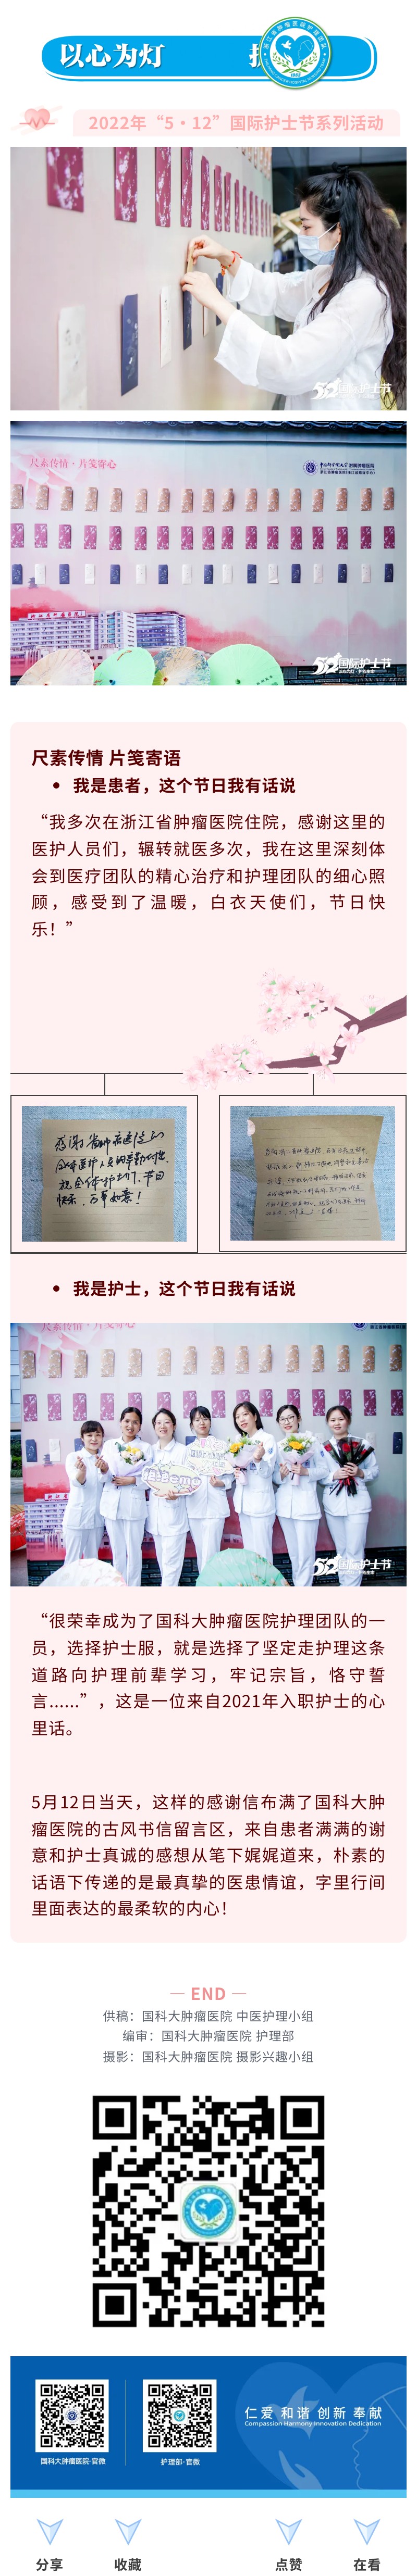 以心为灯
2022年“5·12”国际护士节系列活动
512国际护士节
尺素传情·片笺寄心
512国际护士节
尺素传情 片笺寄语
• 我是患者，这个节日我有话说
“我多次在浙江省肿瘤医院住院，感谢这里的
医护人员们，辗转就医多次，我在这里深刻体
会到医疗团队的精心治疗和护理团队的细心照
顾，感受到了温暖，白衣天使们，节日快
乐！”
感谢省肿瘤医院的
全体医护人员的辛勤付出.
祝全体护士们.节日
快乐.万事如意！
• 我是护士，这个节日我有话说
尺素传情·片笺寄心
512国际护士节
“很荣幸成为了国科大肿瘤医院护理团队的一
员，选择护士服，就是选择了坚定走护理这条
道路向护理前辈学习，牢记宗旨，恪守誓
言......”，这是一位来自2021年入职护士的心
里话。
5月12日当天，这样的感谢信布满了国科大肿
瘤医院的古风书信留言区，来自患者满满的谢
意和护士真诚的感想从笔下娓娓道来，朴素的
话语下传递的是最真挚的医患情谊，字里行间
里面表达的最柔软的内心！
END
供稿：国科大肿瘤医院 中医护理小组
编审：国科大肿瘤医院 护理部
摄影：国科大肿瘤医院 摄影兴趣小组
仁爱 和谐 创新 奉献
Compassion Harmony Innovation Dedication
国科大肿瘤医院·官微
护理部·官微
分享
收藏
点赞
在看